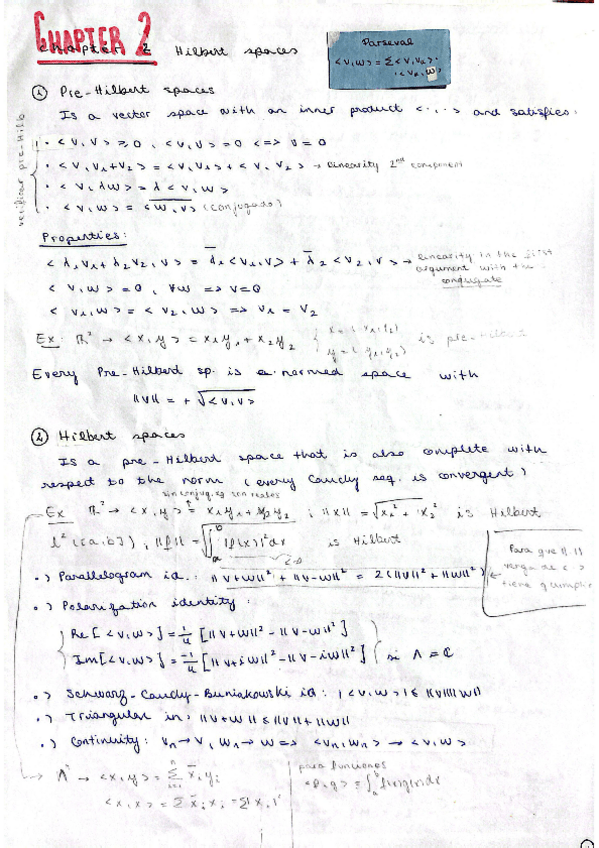 CHAPTER 2.
Chapter 2 Hilbert spaces
Parseval
<v,w> = Σ<v,vn>·
·<vn,w>
① Pre-Hilbert spaces
Is a vector space with an inner product <·,·> and satisfies:
verificar pre-Hilb
· <v,v> ≥ 0, <v,v> = 0 <=> v = 0
· <v,v1+v2> = <v,v1> + <v,v2> → linearity 2nd component
· <v,λw> = λ<v,w>
· <v,w> = \overline{<w,v>} (conjugado)
Properties:
<λ1v1+λ2v2,v> = \overline{λ}1<v1,v> + \overline{λ}2<v2,v> → linearity in the first
argument with the
conjugate
<v,w> = 0, ∀w => v=0
<v1,w> = <v2,w> => v1 = v2
Ex: ℝ² → <x,y> = x1y1 + x2y2 { x = (x1,x2) y = (y1,y2) is pre-Hilbert
Every Pre-Hilbert sp. is a normed space with
||v|| = +√<v,v>
② Hilbert spaces
Is a pre-Hilbert space that is also complete with
respect to the norm (every Cauchy seq. is convergent)
sin conjug. eg son reales
Ex ℝ² → <x,y> = x1y1 + x2y2 ; ||x|| = √x1² + x2² is Hilbert
l²([a,b]), ||f|| = √∫ₐᵇ |f(x)|² dx < ∞ is Hilbert
Para que ||·||
venga de < >
tiene q cumplir
·) Parallelogram id.: ||v+w||² + ||v-w||² = 2(||v||² + ||w||²)
·) Polarization identity:
Re[<v,w>] = 1/4 [||v+w||² - ||v-w||²]
Im[<v,w>] = -1/4 [||v+iw||² - ||v-iw||²] si Λ = ℂ
·) Schwarz-Cauchy-Buniakowski id: |<v,w>| ≤ ||v|| ||w||
·) Triangular in: ||v+w|| ≤ ||v|| + ||w||
·) Continuity: vn→v, wn→w => <vn,wn> → <v,w>
Λⁿ → <x,y> = Σ \overline{x}i yi
<x,x> = Σ \overline{x}i xi = Σ|xi|²
para funciones